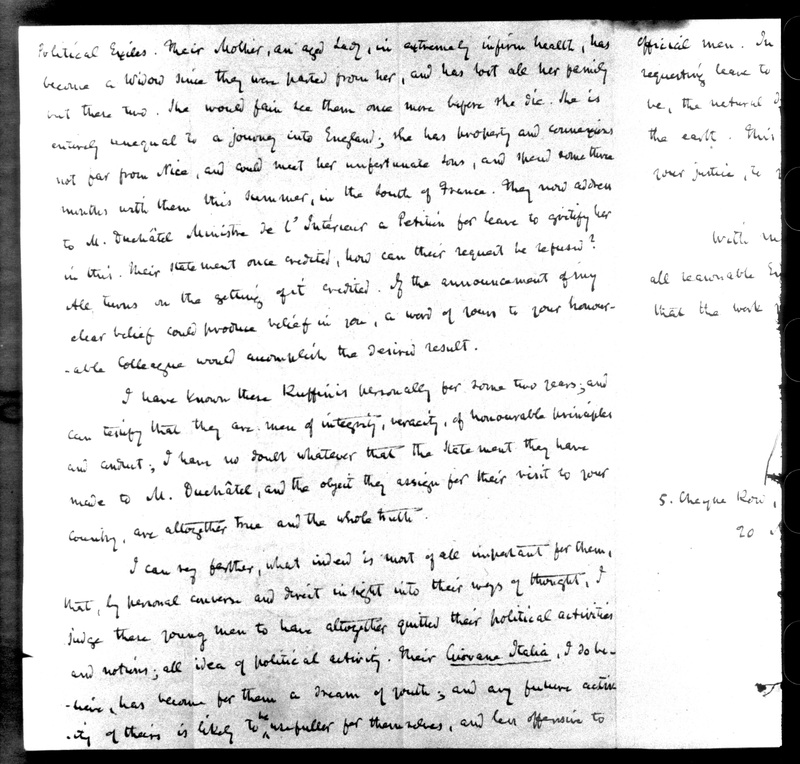 Political Exiles. Their Mother, an aged Lady, in extremely infirm health, has
become a Widow since they were parted from her, and has lost all her family
but these two. She would fain see them once more before she die. She is
entirely unequal to a journey into England; she has property and connexions
not far from Nice, and could meet her unfortunate sons, and spend some three
months with them this summer, in the South of France. They now address
to M. Duchâtel Ministre de l'Intérieur a Petition for leave to gratify her
in this. Their statement once credited, how can their request be refused?
All turns on the getting of it credited. If the announcement of my
clear belief could produce belief in you, a word of yours to your honour-
-able Colleague would accomplish the desired result.
I have known these Ruffinis personally for some two years; and
can testify that they are men of integrity, veracity, of honourable principles
and conduct; I have no doubt whatever that the statement they have
made to M. Duchâtel, and the object they assign for their visit to your
Country, are altogether true and the whole truth.
I can say farther, what indeed is most of all important for them,
that, by personal converse and direct insight into their ways of thought, I
judge these young men to have altogether quitted their political activities
and notions; all idea of political activity. Their Giovane Italia, I do be-
-lieve, has become for them a dream of youth; and any future activ-
-ity of theirs is likely to be usefuller for themselves, and less offensive to
official men. In
requesting leave to
be, the natural
the earth. This
your justice, to
With
all reasonable
that the work
5. Cheyne Row,
20